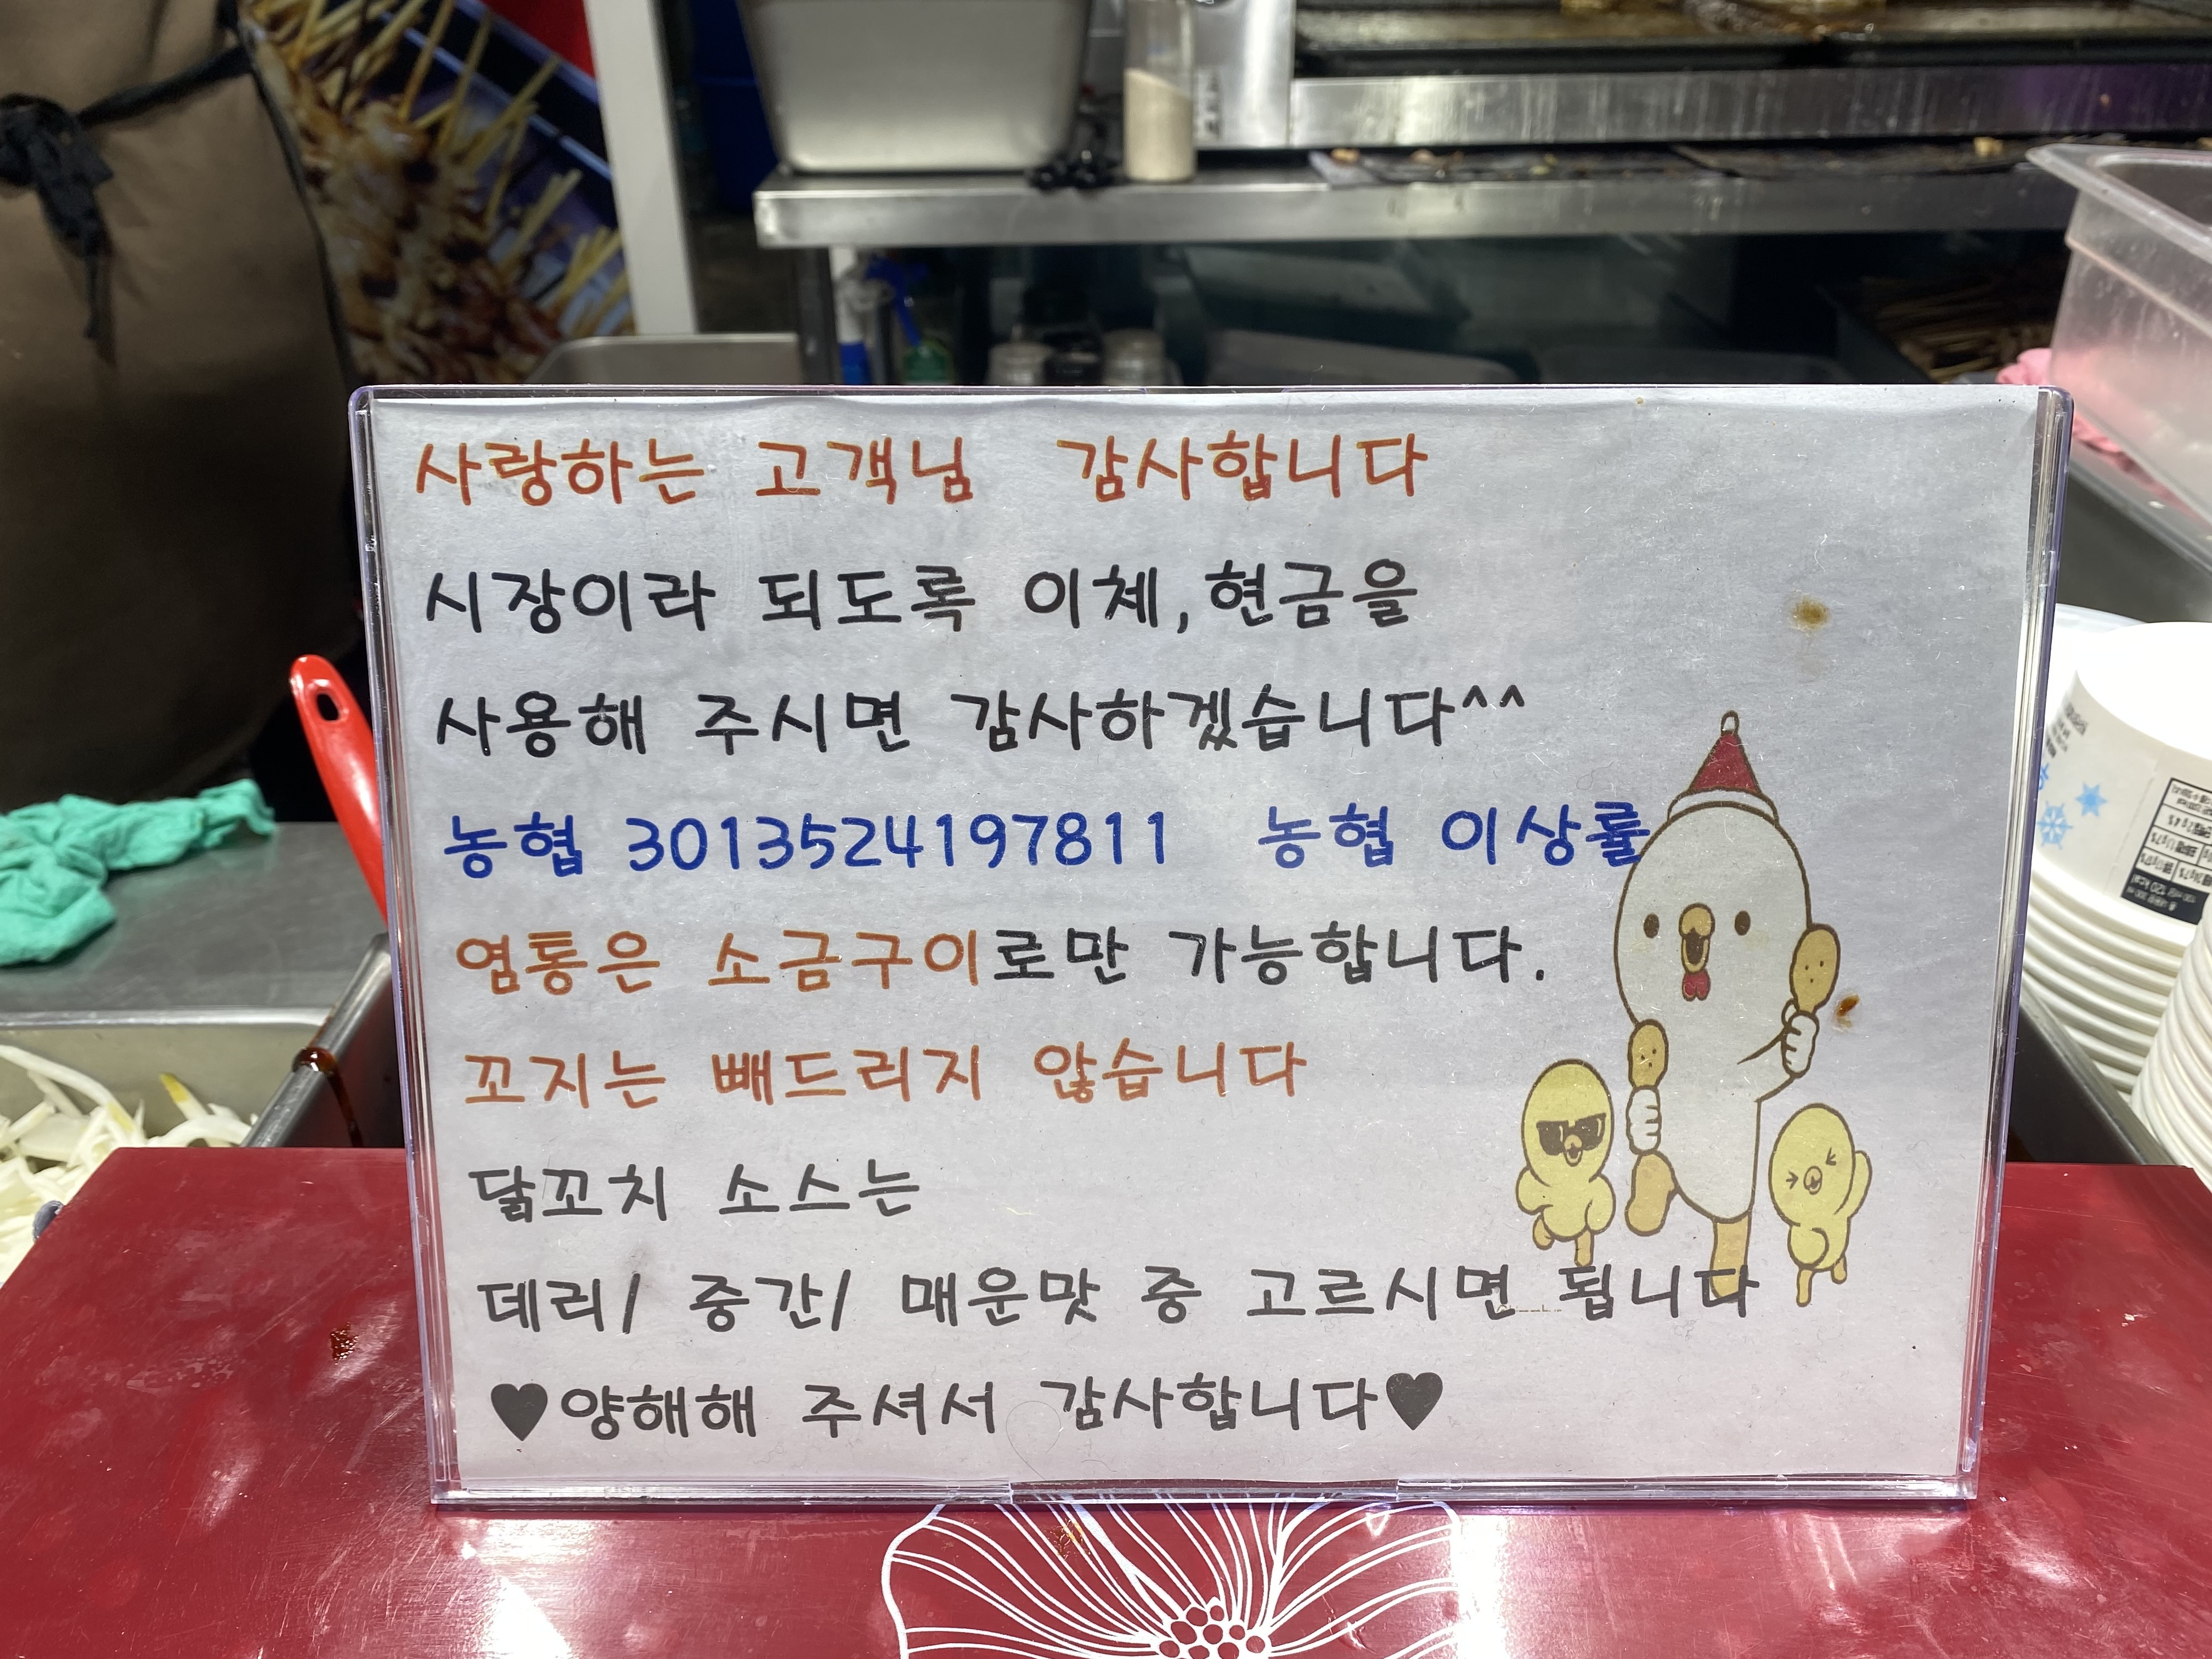 사랑하는 고객님 감사합니다
시장이라 되도록 이체,현금을
사용해 주시면 감사하겠습니다^^
농협 3013524197811 농협 이상률
염통은 소금구이로만 가능합니다.
꼬지는 빼드리지 않습니다
닭꼬치 소스는
데리/ 중간/ 매운맛 중 고르시면 됩니다
♥양해해 주셔서 감사합니다♥